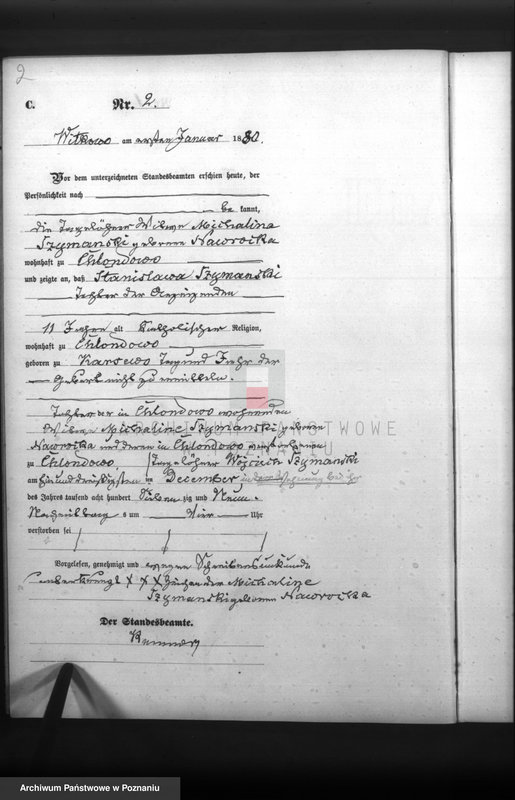 2
C. Nr. 2.
Witkowo am ersten Januar 1880.
Vor dem unterzeichneten Standesbeamten erschien heute, der
Persönlichkeit nach
be kannt,
die Tagelöhner Witwe Michalina
Szymanski geborene Nawrocka
wohnhaft zu Chlondowo
und zeigte an, daß Stanislawa Szymanski
Tochter der Anzeigenden
11 Jahre alt katholischer Religion,
wohnhaft zu Chlondowo
geboren zu Karsewo Tag und Jahr der
Geburt nicht zu ermitteln.
Tochter der in Chlondowo wohnenden
Witwe Michaline Szymanski geborene
Nawrocka und deren in Chlondowo verstorbenen
zu Chlondowo Tagelöhner Wojciech Szymanski
am ein und dreißigsten im Dezember in
des Jahres tausend acht hundert Sieben zig und Neun
Nachmittag s um Vier Uhr
verstorben sei
Vorgelesen, genehmigt und wegen Schreibensunkunde
unterkreuzt X X X Michaline
Szymanski geborene Nawrocka
Der Standesbeamte.
PAŃSTWOWE
Archiwum Państwowe w Poznaniu